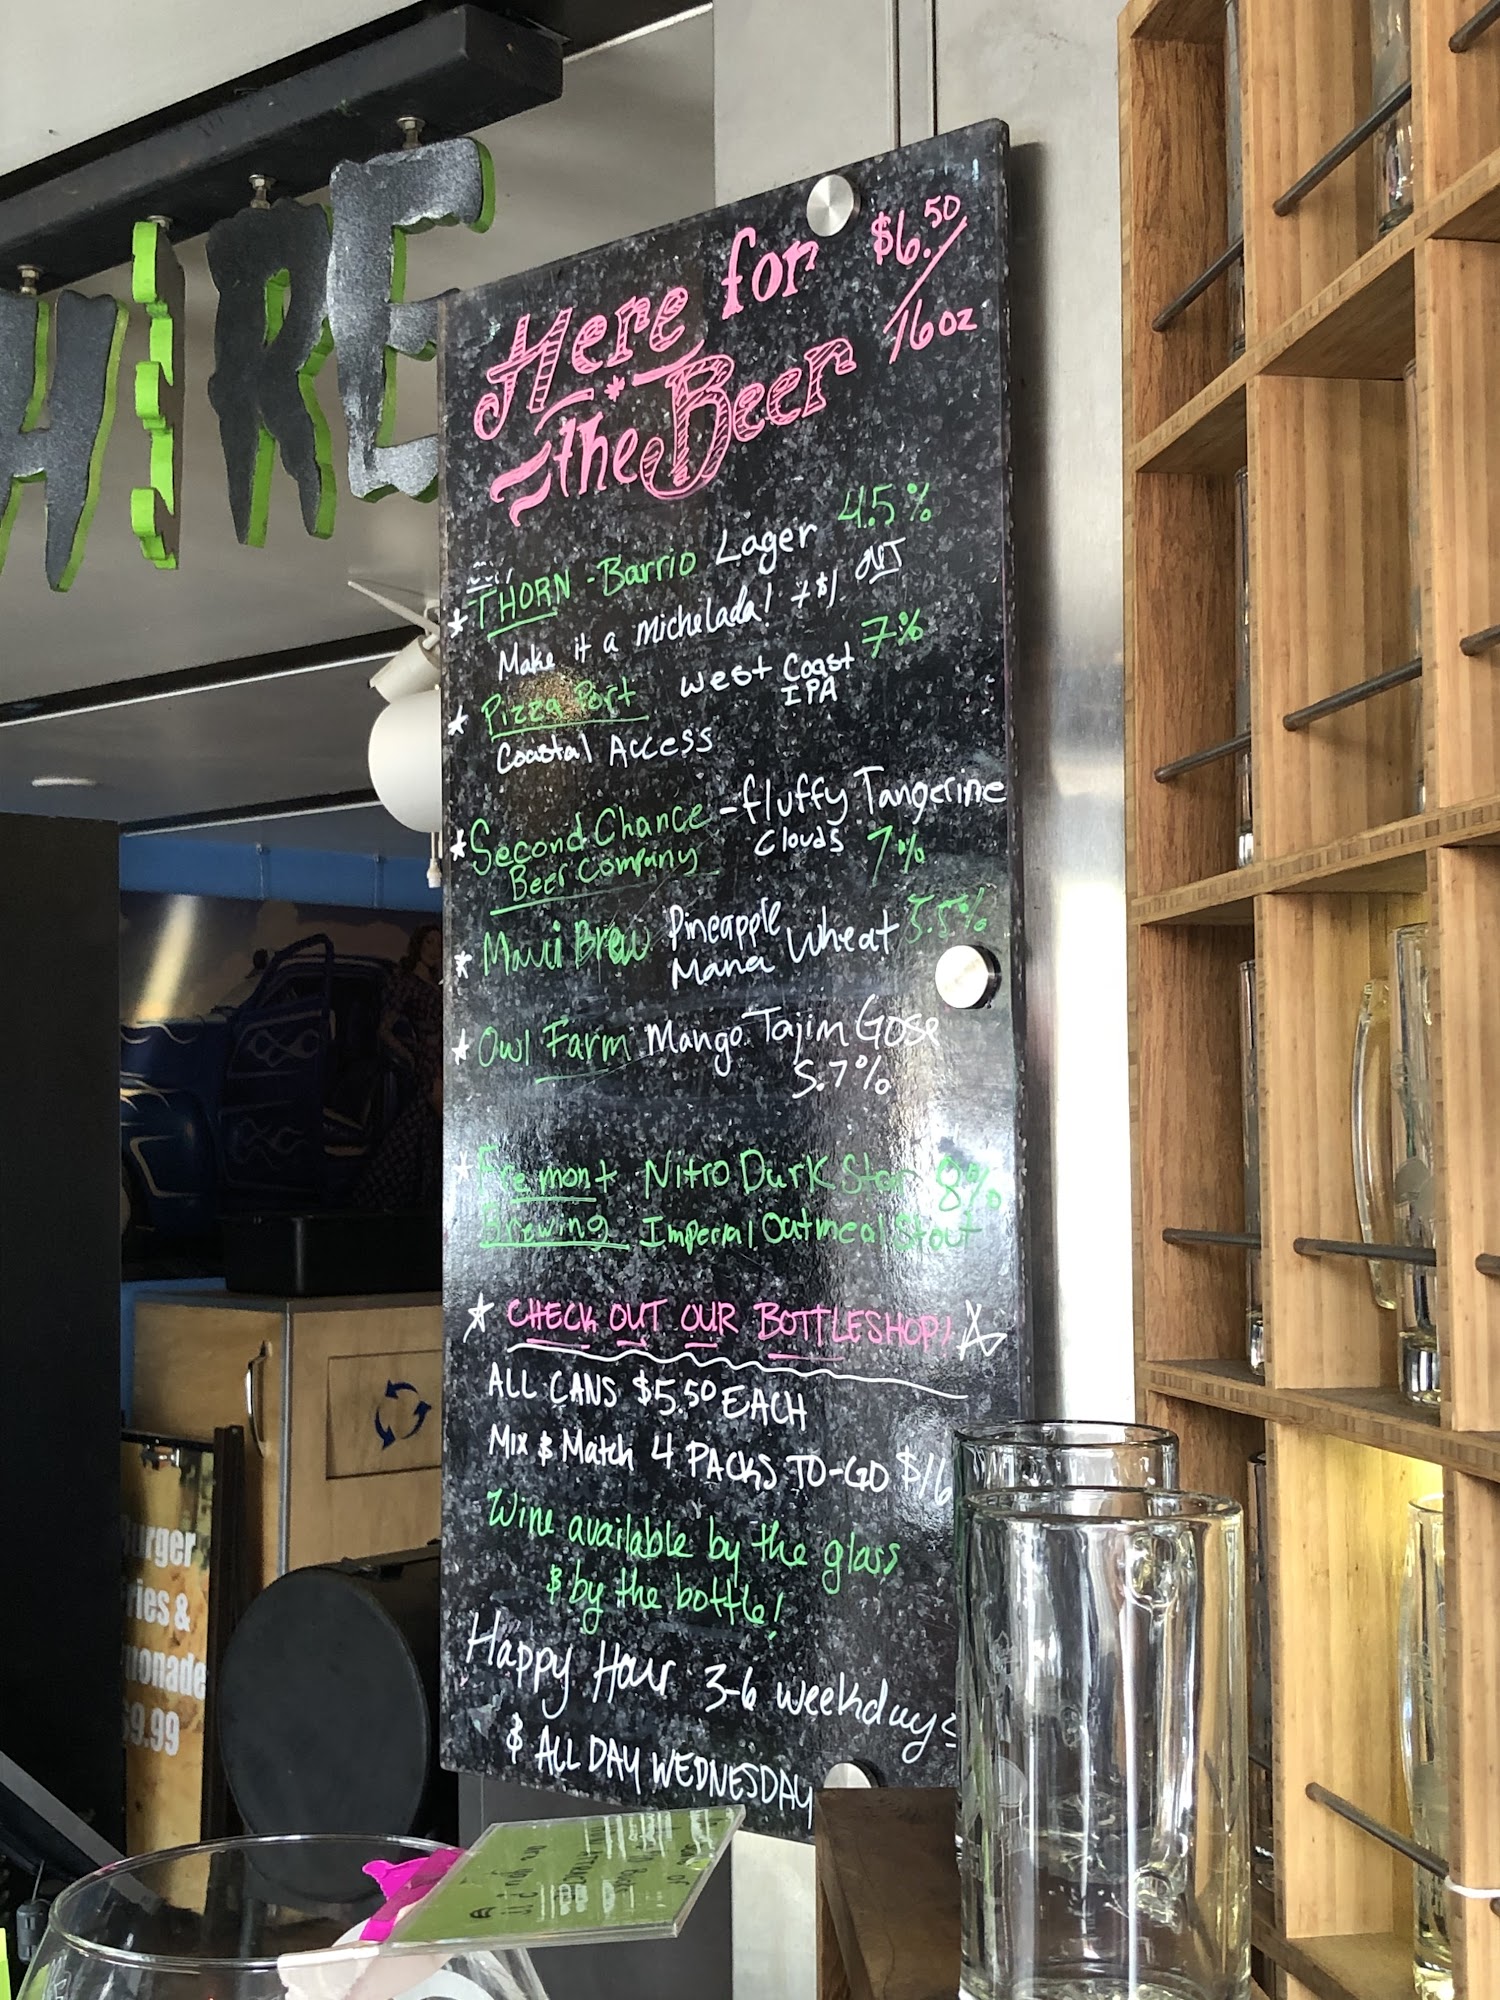 HIRE
Here for $6.50/
the Beer 16oz
* THORN - Barrio Lager 4.5%
Make it a michelada! +$1.
* Pizza Port West Coast 7%
IPA
Coastal Access
* Second Chance - fluffy Tangerine
Beer Company Clouds 7%
* Maui Brew Pineapple Wheat 5.5%
Mana
* Owl Farm Mango Tajim Gose
5.7%
* Fremont Nitro Dark Star 8%
Brewing Imperial Oatmeal Stout
CHECK OUT OUR BOTTLESHOP!
ALL CANS $5.50 EACH
Mix & Match 4 PACKS TO-GO $16
Wine available by the glass
& by the bottle!
Happy Hour 3-6 weekdays
& ALL DAY WEDNESDAY
urger
ries &
monade
9.99